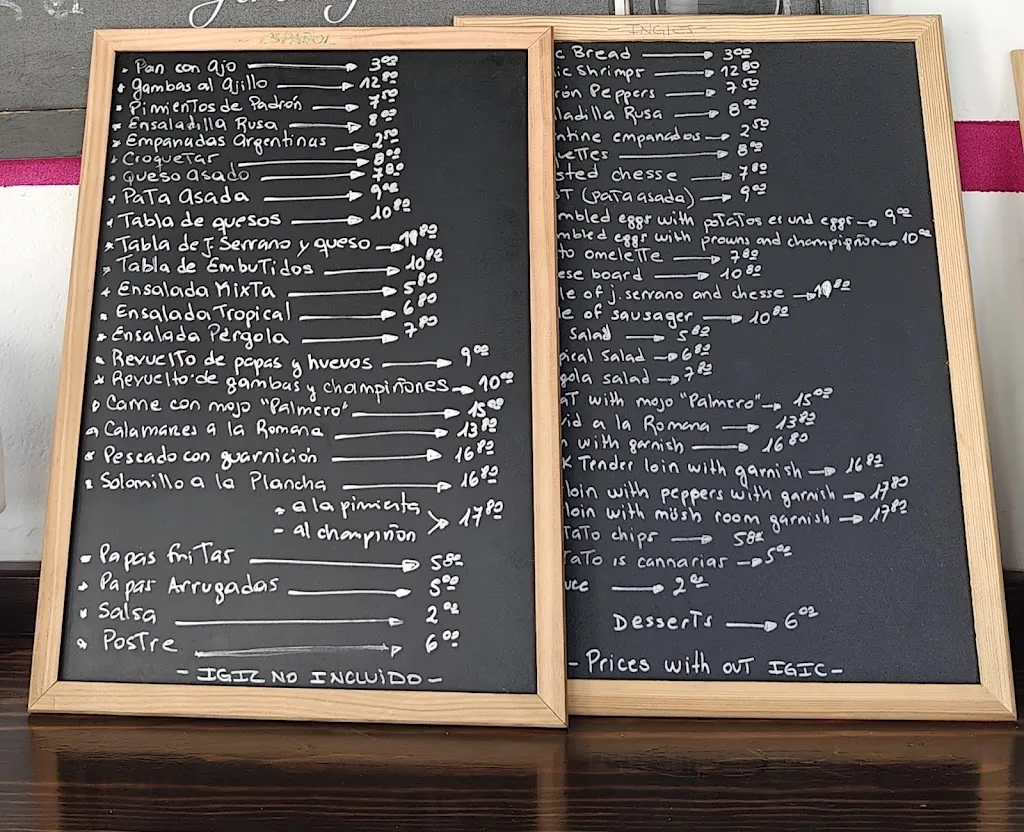 ESPAÑOL
Pan con ajo 3⁰⁰
Gambas al Ajillo 12⁸⁰
Pimientos de Padrón 7⁵⁰
Ensaladilla Rusa 8⁰⁰
Empanadas Argentinas 2⁵⁰
Croquetas 8⁰⁰
Queso asado 7⁸⁰
Pata asada 9⁰⁰
Tabla de quesos 10⁸⁰
Tabla de J Serrano y queso
Tabla de Embutidos 10⁸⁰
Ensalada Mixta 5⁸⁰
Ensalada Tropical 6⁸⁰
Ensalada Pérgola 7⁸⁰
Revuelto de papas y huevos 9⁰⁰
Revuelto de gambas y champiñones 10⁰⁰
Carne con mojo "Palmero" 15⁰⁰
Calamares a la Romana 13⁸⁰
Pescado con guarnición 16⁸⁰
Solomillo a la Plancha 16⁸⁰
- a la pimienta
- al champiñon > 17⁸⁰
Papas fritas 5⁸⁰
Papas Arrugadas 5⁰⁰
Salsa 2⁰⁰
Postre 6⁰⁰
- IGIC NO INCLUIDO -
INGLES
c Bread 3⁰⁰
ic Shrimps 12⁸⁰
rón Peppers 7⁵⁰
ladilla Rusa 8⁰⁰
ntine empanados 2⁵⁰
lettes 8⁰⁰
sted chesse 7⁸⁰
T (pata asada) 9⁰⁰
mbled eggs with potatos es und eggs 9⁰⁰
mbled eggs with prowns and champigñon 10⁰⁰
to omelette 7⁸⁰
ese board 10⁸⁰
le of j. serrano and chesse
le of sausager 10⁸⁰
Salad 5⁸⁰
pical salad 6⁸⁰
gola salad 7⁸⁰
aT with mojo "Palmero" 15⁰⁰
id a la Romana 13⁸⁰
h with garnish 16⁸⁰
k Tender loin with garnish 16⁸⁰
loin with peppers with garnish 17⁸⁰
loin with müsh room garnish 17⁸⁰
tato chips 5⁸⁰
tato is cannarias 5⁰⁰
uce 2⁰⁰
Desserts 6⁰⁰
- Prices with out IGIC -